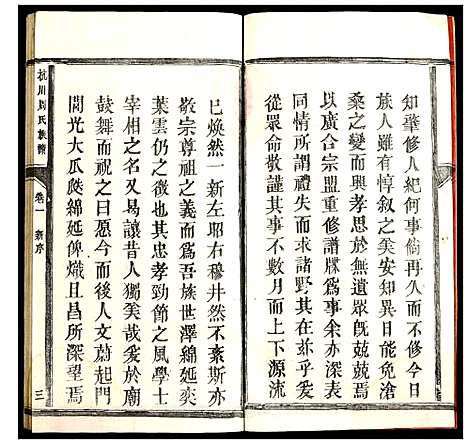 知肇修人紀何事倘再久而不修今日
族人雖有惇敘之美安知異日能免滄
桑之變而興孝思於無遺眾旣兢兢焉
以廣合宗盟重修譜牒爲事余亦深表
同情所謂禮失而求諸野其在茲乎爰
從眾命敬謹其事不數月而上下源流
已煥然一新左昭右穆井然不紊斯亦
敬宗尊祖之義而爲吾族世澤綿延奕
葉雲仍之徵也其忠孝勁節之風學士
相之才又易讓昔人獨美矣茲於廟
鼓舞而祝之曰愿今而後人文蔚起門
閭光大瓜瓞綿延俾熾且昌所深望焉
杭川周氏族譜
卷一 新序
三